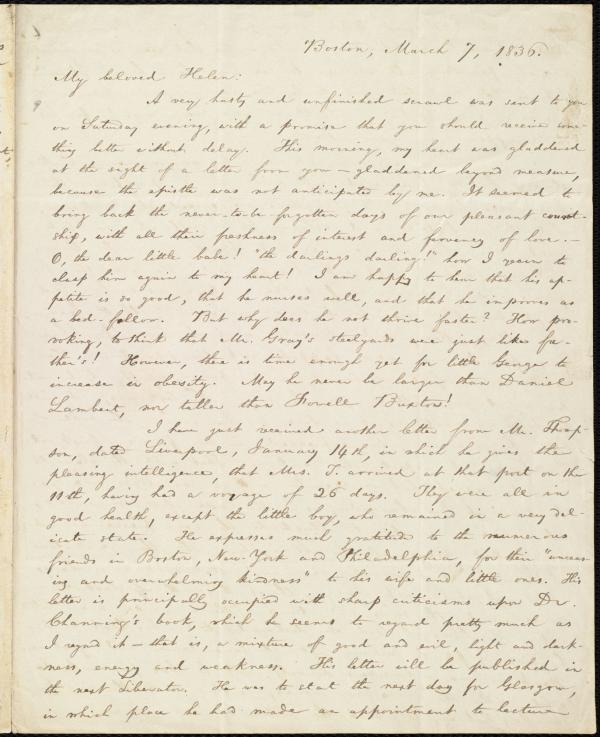 Boston, March 7, 1836.
My beloved Helen:
A very hasty and unfinished scrawl was sent to you
on Saturday evening, with a promise that you should receive some-
thing better without delay. This morning, my heart was gladdened
at the sight of a letter from you — gladdened beyond measure,
because the epistle was not anticipated by me. It seemed to
bring back the never-to-be forgotten days of our pleasant court-
ship, with all their freshness of interest and fervency of love. —
O, the dear little babe! "the darling's darling!" how I yearn to
clasp him again to my heart! I am happy to hear that his ap-
petite is so good, that he nurses well, and that he improves as
a bed-fellow. But why does he not thrive faster? How pro-
voking, to think that Mr. Gray's steelyards were just like fa-
ther's! However, there is time enough yet for little George to
increase in obesity. May he never be larger than Daniel
Lambert, nor taller than Fowell Buxton!
I have just received another letter from Mr. Thomp-
son, dated Liverpool, January 14th, in which he gives the
pleasing intelligence, that Mrs. T. arrived at that port on the
11th, having had a voyage of 26 days. They were all in
good health, except the little boy, who remained in a very del-
icate state. He expresses much gratitude to the numerous
friends in Boston, New-York and Philadelphia, for their "unceas-
ing and overwhelming kindness" to his wife and little ones. His
letter is principally occupied with sharp criticisms upon Dr.
Channing's book, which he seems to regard pretty much as
I regard it — that is, a mixture of good and evil, light and dark-
ness, energy and weakness. His letter will be published in
the next Liberator. He was to start the next day for Glasgow,
in which place he had made an appointment to lecture